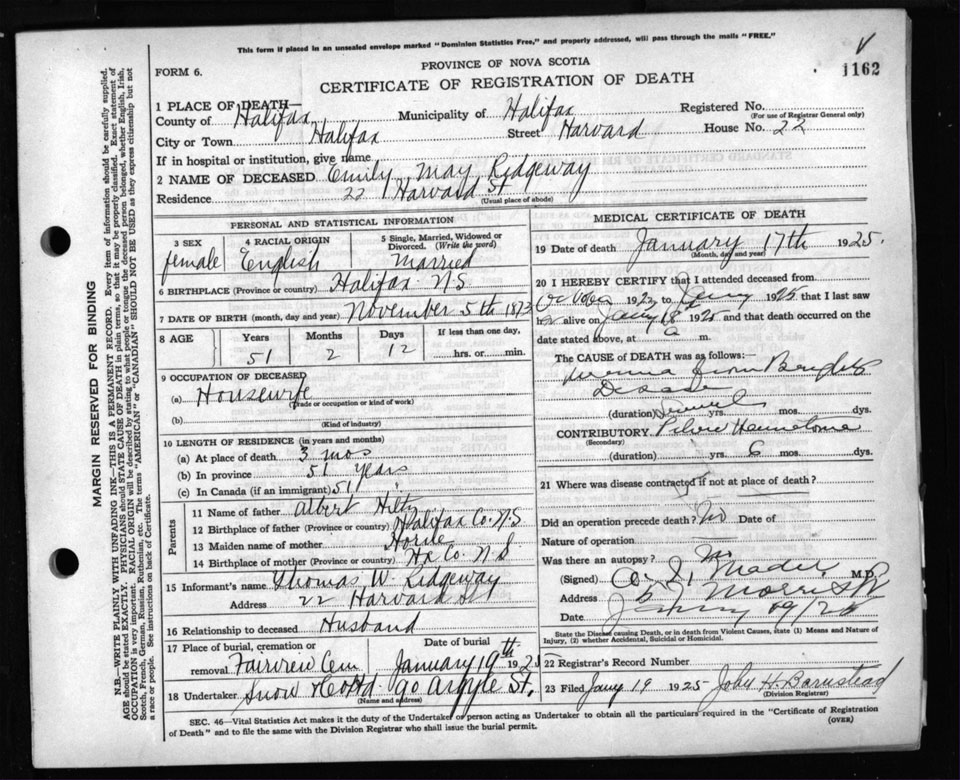 This form if placed in an unsealed envelope marked "Dominion Statistics Free," and properly addressed, will pass through the mails "FREE."
PROVINCE OF NOVA SCOTIA
FORM 6.
CERTIFICATE OF REGISTRATION OF DEATH
1162
1 PLACE OF DEATH—
County of Halifax Municipality of Halifax Registered No.
(For use of Registrar General only)
City or Town Halifax Street Harvard House No. 22
If in hospital or institution, give name
2 NAME OF DECEASED Emily May Ridgeway
Residence 22 Harvard St
(Usual place of abode)
PERSONAL AND STATISTICAL INFORMATION
3 SEX 4 RACIAL ORIGIN 5 Single, Married, Widowed or Divorced. (Write the word)
female English Married
6 BIRTHPLACE (Province or country) Halifax NS
7 DATE OF BIRTH (month, day and year) November 5th 1873
8 AGE Years Months Days If less than one day,
51 2 12 ...... hrs. or ...... min.
9 OCCUPATION OF DECEASED
(a) Housewife
(Trade or occupation or kind of work)
(b)
(Kind of industry)
10 LENGTH OF RESIDENCE (in years and months)
(a) At place of death 3 mos
(b) In province 51 years
(c) In Canada (if an immigrant) 51 "
Parents
11 Name of father Albert Hilty
12 Birthplace of father (Province or country) Halifax Co. NS
13 Maiden name of mother Horne
14 Birthplace of mother (Province or country) Hx Co. N.S
15 Informant's name Thomas W. Ridgeway
Address 22 Harvard St
16 Relationship to deceased Husband
17 Place of burial, cremation or removal Fairview Cem Date of burial January 19th 1925
18 Undertaker Snow & Co Ltd. 90 Argyle St.
(Name and address)
MEDICAL CERTIFICATE OF DEATH
19 Date of death January 17th 1925.
(Month, day and year)
20 I HEREBY CERTIFY that I attended deceased from
October 192 to Jany 1925 that I last saw
her alive on Jany 1925 and that death occurred on the
date stated above, at a m.
The CAUSE OF DEATH was as follows:—
Uremia from Brights
Disease
(duration) Several yrs. mos. dys.
CONTRIBUTORY Pelvic
(Secondary)
(duration) yrs. 6 mos. dys.
21 Where was disease contracted if not at place of death?
Did an operation precede death? No Date of
Nature of operation
Was there an autopsy? No
(Signed) Mader M.D.
Address 57 Morris St
Date Jany 19/25
State the Disease causing Death, or in death from Violent Causes, state (1) Means and Nature of Injury, (2) whether Accidental, Suicidal or Homicidal.
22 Registrar's Record Number
23 Filed Jany 19 1925 John H. Barnstead
(Division Registrar)
SEC. 46—Vital Statistics Act makes it the duty of the Undertaker or person acting as Undertaker to obtain all the particulars required in the "Certificate of Registration
of Death" and to file the same with the Division Registrar who shall issue the burial permit. (OVER)
MARGIN RESERVED FOR BINDING
N.B.—WRITE PLAINLY WITH UNFADING INK—THIS IS A PERMANENT RECORD. Every item of information should be carefully supplied.
AGE should be stated EXACTLY. PHYSICIANS should STATE CAUSE OF DEATH in plain terms, so that it may be properly classified. Exact statement of
OCCUPATION is very important. RACIAL ORIGIN will be described by stating to what people or tongue the deceased person belonged, whether English, Irish,
Scotch, French, German, Russian, Ruthenian, etc. The terms "AMERICAN" or "CANADIAN" SHOULD NOT BE USED as they express citizenship but not
a race or people. See instructions on back of Certificate.